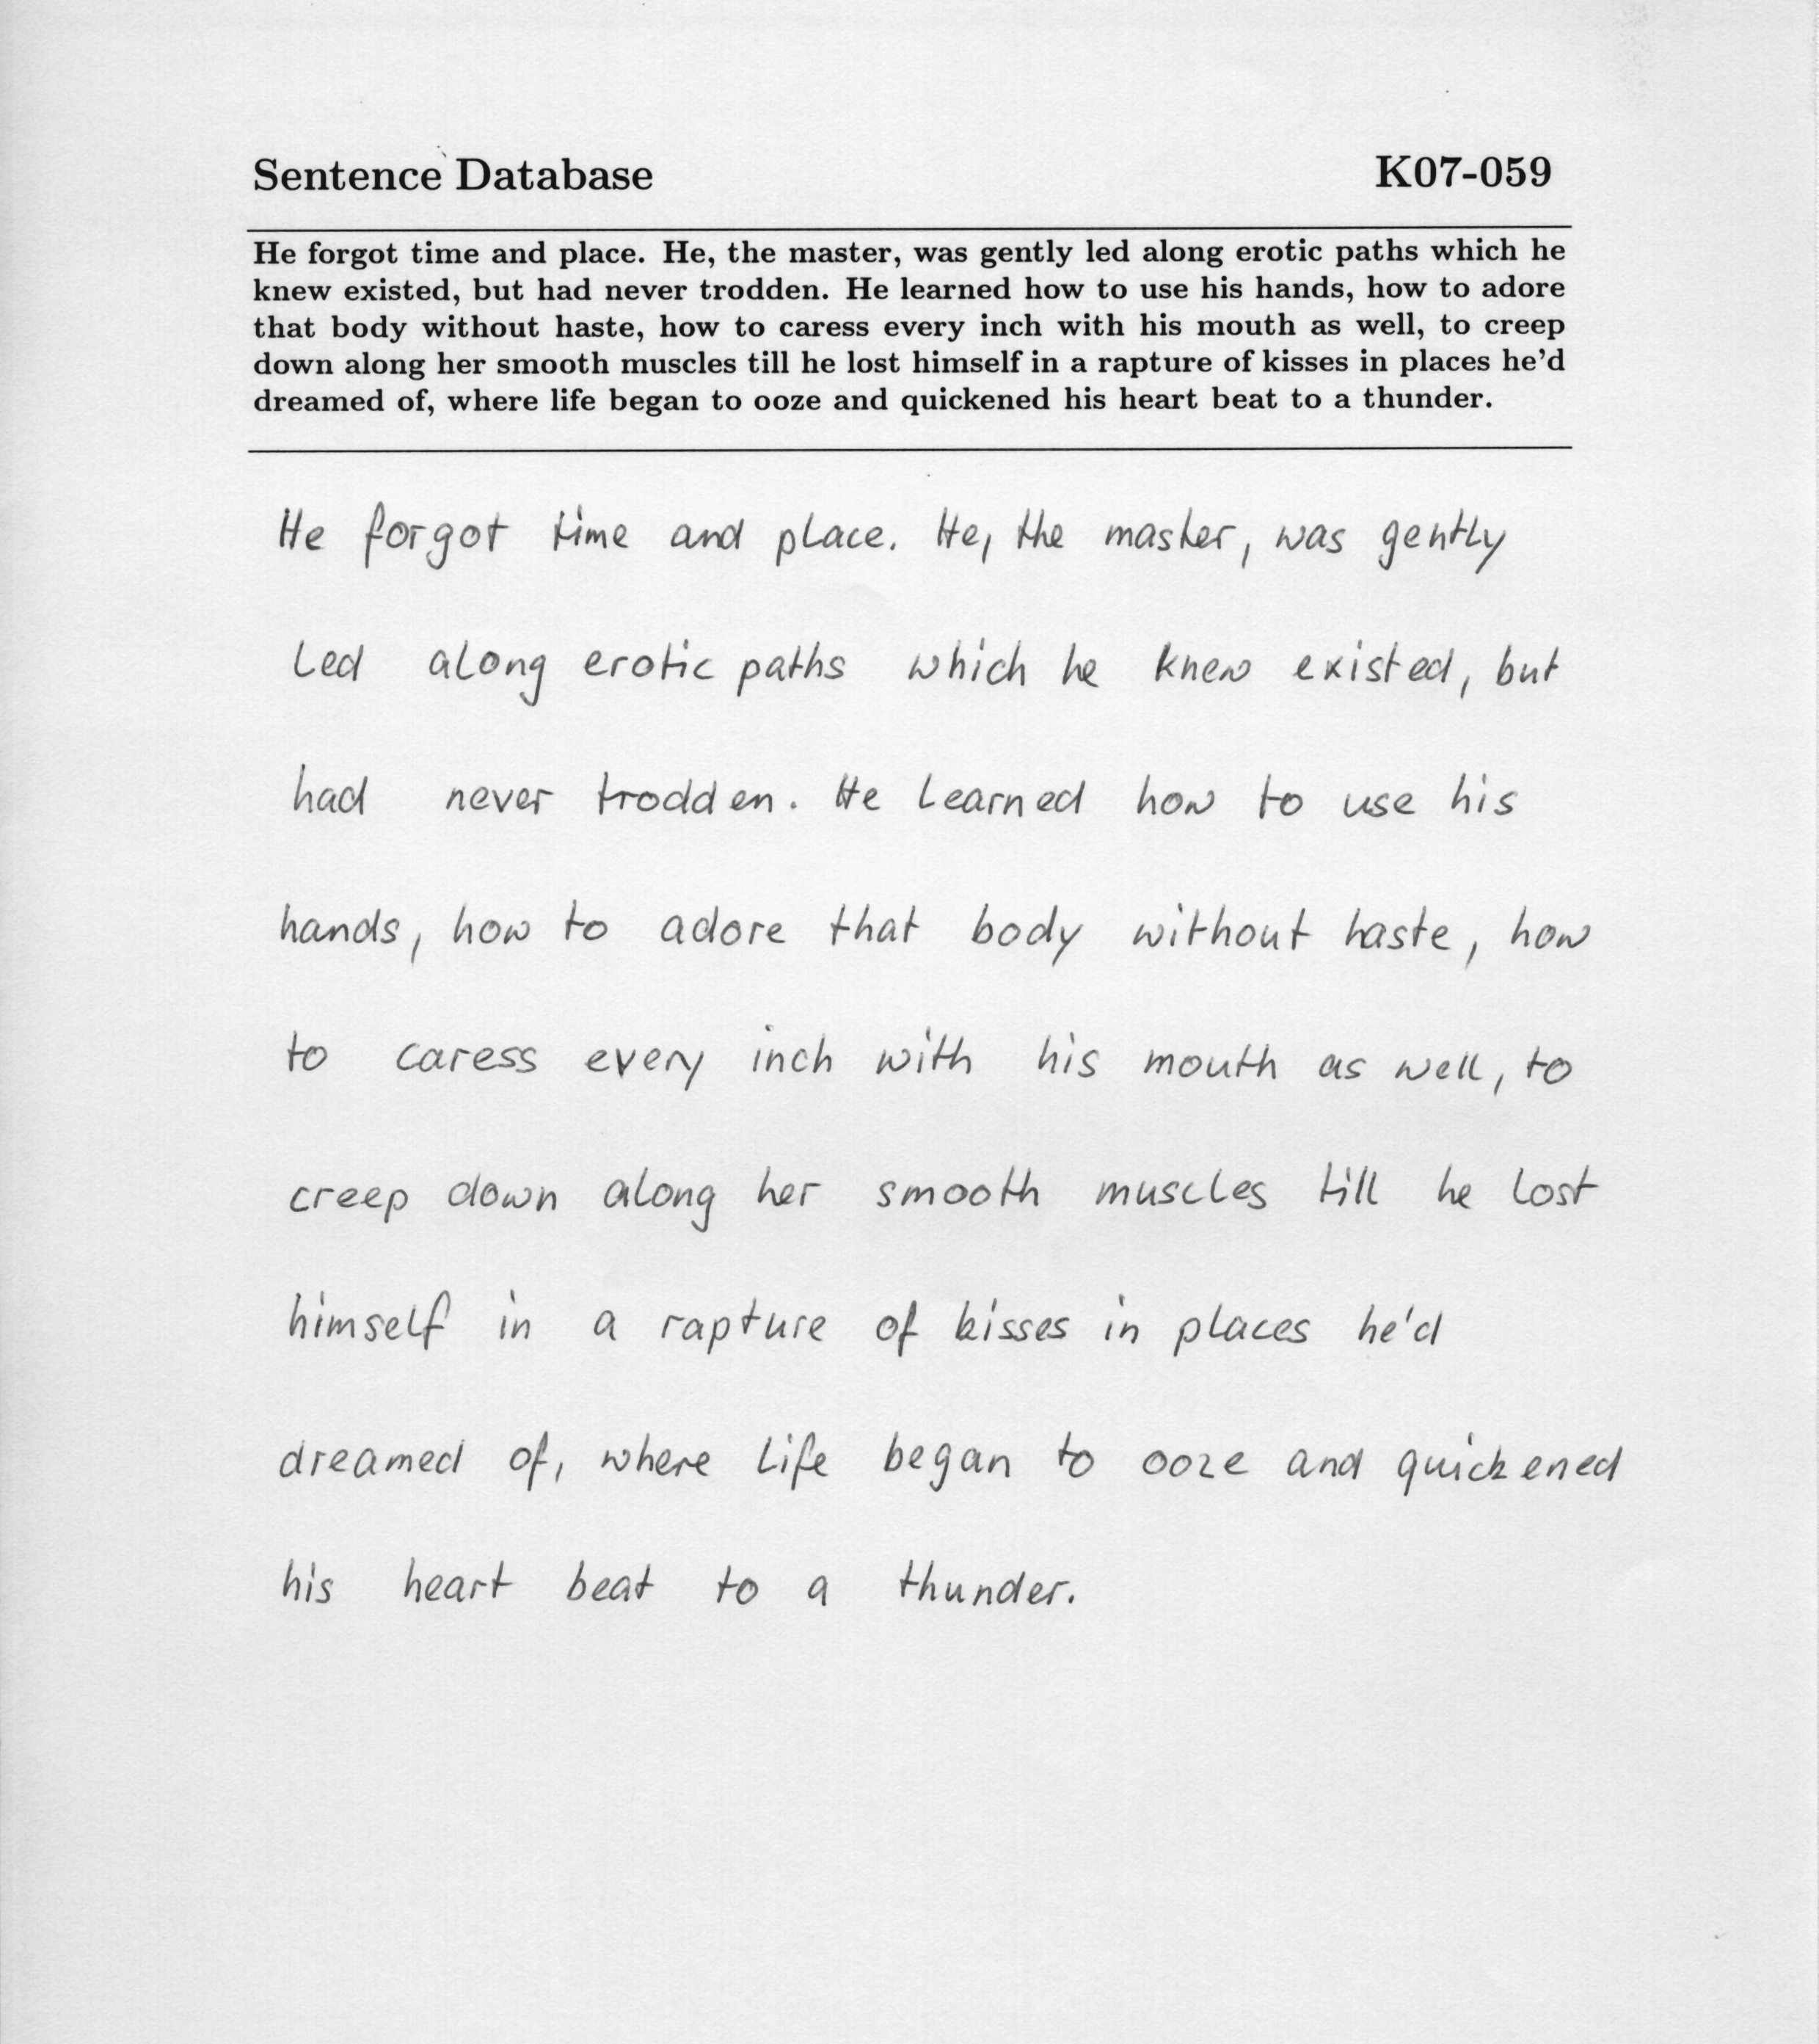 Sentence Database K07-059
He forgot time and place. He, the master, was gently led along erotic paths which he
knew existed, but had never trodden. He learned how to use his hands, how to adore
that body without haste, how to caress every inch with his mouth as well, to creep
down along her smooth muscles till he lost himself in a rapture of kisses in places he'd
dreamed of, where life began to ooze and quickened his heart beat to a thunder.
He forgot time and place. He, the master, was gently
led along erotic paths which he knew existed, but
had never trodden. He learned how to use his
hands, how to adore that body without haste, how
to caress every inch with his mouth as well, to
creep down along her smooth muscles till he lost
himself in a rapture of kisses in places he'd
dreamed of, where life began to ooze and quickened
his heart beat to a thunder.